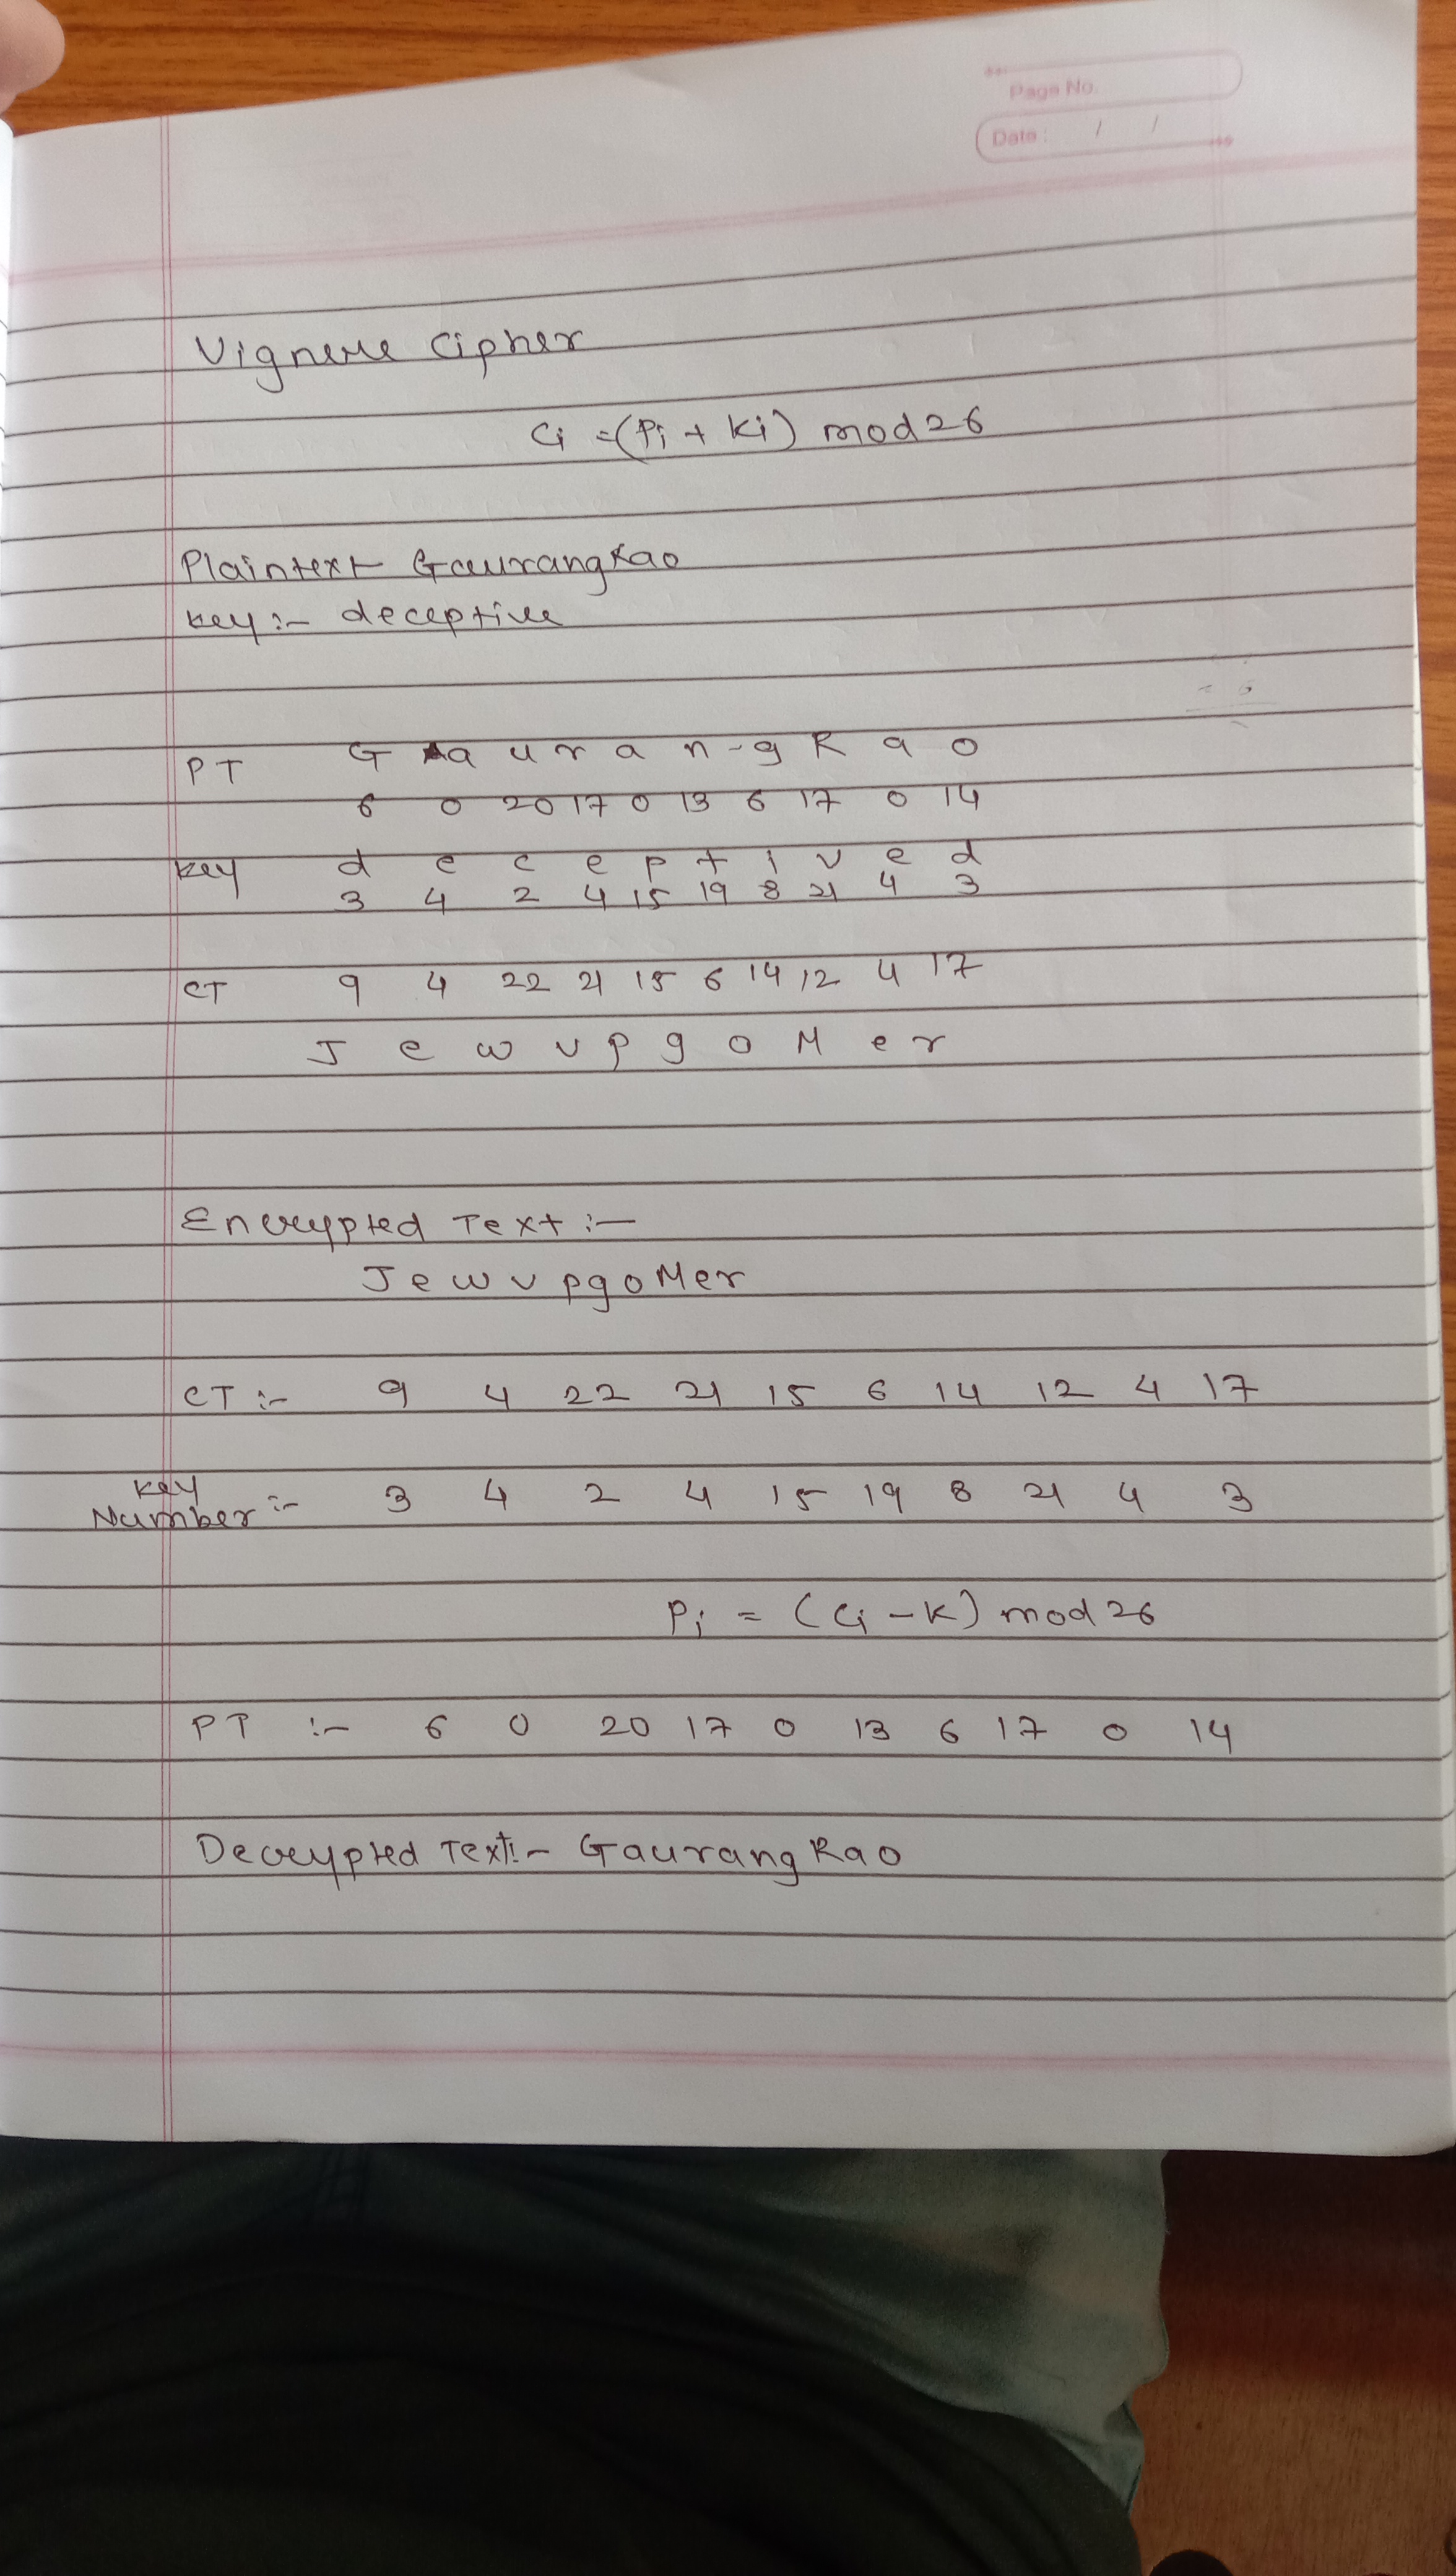 Page No.
Date : / /
Vignere Cipher
Ci = (Pi + Ki) mod 26
Plaintext GaurangRao
key :- deceptive
PT G a u r a n - g R a o
6 0 20 17 0 13 6 17 0 14
key d e c e p t i v e d
3 4 2 4 15 19 8 21 4 3
CT 9 4 22 21 15 6 14 12 4 17
J e w v p g o M e r
Encrypted Text :-
J e w v p g o M e r
CT :- 9 4 22 21 15 6 14 12 4 17
key
Number :- 3 4 2 4 15 19 8 21 4 3
Pi = (Ci - K) mod 26
PT :- 6 0 20 17 0 13 6 17 0 14
Decrypted Text :- Gaurang Rao